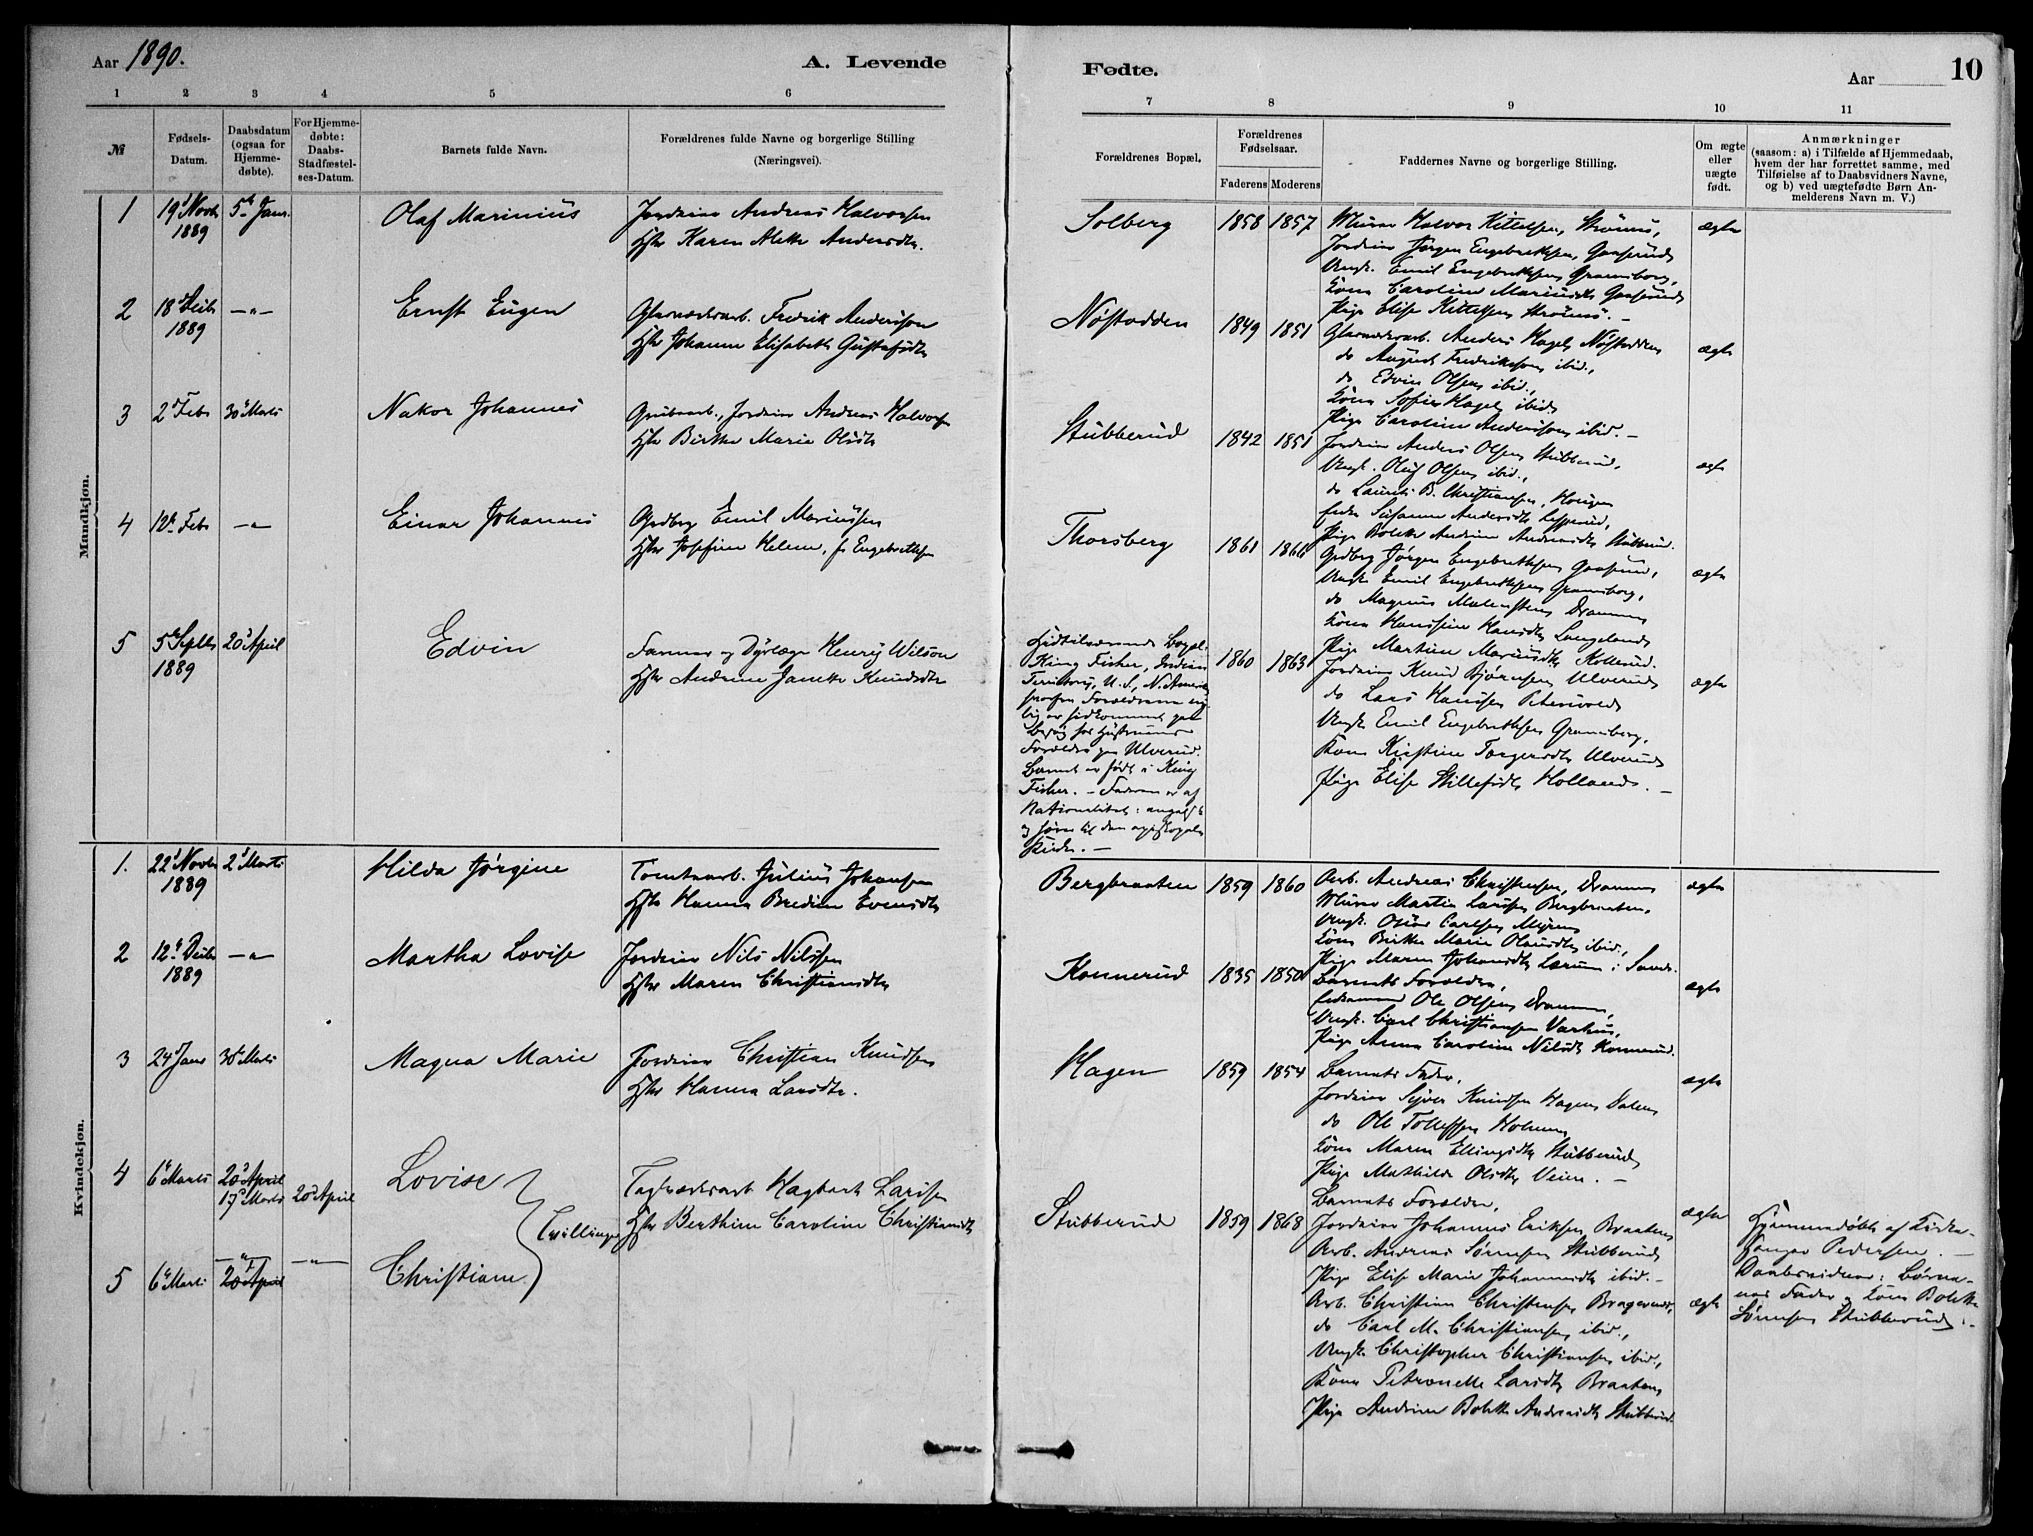 Aar 1890.
A. Levende
Fødte.
Aar
10
1 2 3 4 5 6
7 8 9 10 11
№
Fødsels-Datum.
Daabsdatum (ogsaa for Hjemme-døbte).
For Hjemme-døbte: Daabs-Stadfæstel-ses-Datum.
Barnets fulde Navn.
Forældrenes fulde Navne og borgerlige Stilling (Næringsvei).
Forældrenes Bopæl.
Forældrenes Fødselsaar.
Faderens Moderens
Faddernes Navne og borgerlige Stilling.
Om ægte eller uægte født.
Anmærkninger
(saasom: a) i Tilfælde af Hjemmedaab,
hvem der har forrettet samme, med
Tilføielse af to Daabsvidners Navne,
og b) ved uægtefødte Børn An-
melderens Navn m. V.)
Mandkjøn.
1 19d Novbr 1889 5te Janr. Olaf Marinius
Jordeier Andreas Halvorsen
Hstr Karen Alette Andersdtr.
Solberg 1858 1857
Murer Halvor Kittelsen, Strømsø,
Jordeier Jørgen Engebrethsen, Gaaserud
Ungk. Emil Engebrethsen, Gramsborg,
Kona Caroline Mariusdtr Gaaserud
Pige Elise Kittelsen Strømsø. -
ægte
2 18d Decbr 1889 -"- Ernst Eugen
Glasværksarb. Fredrik Andersson
Hstr Johanne Elisabeth Gustafsdtr
Nøstodden 1849 1851
Glasværksarb. Anders Hagel, Nøstodden
do August Fredriksson, ibid.,
do Edvin Olsen, ibid.,
Kona Sofie Hagel, ibid.
Pige Caroline Andersson, ibid. -
ægte
3 2d Febr 30d Marts Nakor Johannes
Grubearb., Jordeier Andreas Halvorsen
Hstr Birthe Marie Olsdtr
Stubberud 1842 1851
Jordeier Anders Olsen Stubberud,
Ungk. Oluf Olsen, ibid.,
do Laurits B. Christiansen, Hougen
Enke Susanne Andersdtr
Pige Bolette Andrine Andreasdtr Stubberud.
ægte
4 12te Febr -"- Einar Johannes
Grdbrg Emil Mariussen
Hstr Josefine Helene, f. Engebrethsen
Thorsberg 1861 1866
Grdbrg Jørgen Engebrethsen Gaaserud,
Ungk. Emil Engebrethsen Gramsborg,
do Magnus Drammen
Kona Hanssine Hansdtr Langeland
Pige Martine Mariusdtr Kollerud.
ægte
5 5te Septbr 1889 20d April Edvin
Farmer og Dyrlæge Henry Wilson
Hstr Andrine Janette Knudsdtr
Hidtilværende Bopæl:
King Fisher, Indian
Territory, U. S., N. Amerika
hvorfra Forældrene nylig
er hidkommet paa
Besøg hos Hustruens
Forældre paa Ulverud.
Barnet er født i King
Fisher. - Faderen er af
Nationalitet: engelsk
og hører til den episkopale
Kirke. -
1860 1863
Jordeier Knud Bjørnsen, Ulverud
do Lars Hansen Petersvold
Ungk. Emil Engebrethsen Gramsborg,
Kona Kirstine Torgersdtr Ulverud
Pige Elise Holland. -
ægte
Kvindekjøn.
1. 22d Novbr 1889 2d Marts Hilda Jørgine
Tomtearb. Julius Johansen
Hstr Hanna Bredine Evensdtr
Bergbraaten 1859 1860
Arb. Andreas Christensen, Drammen
Murer Martin Larsen Bergbraaten,
Ungk. Oskar Carlsen Myrene
Kona Birthe Marie Olausdtr ibid.,
Pige Maren Johansdtr Lærum i Sande.
ægte
2 12te Decbr 1889 -"- Martha Lovise
Jordeier Nils Nilssen
Hstr Maren Christiansdtr
Konnerud 1835 1850
Barnets Forældre,
Ole Olsen, Drammen,
Ungk. Carl Christiansen
Pige Anna Caroline Nilsdtr Konnerud.
ægte
3 24d Janr 30d Marts Magna Marie
Jordeier Christian Knudsen
Hstr Hanna Larsdtr.
Hagen 1859 1854
Barnets Fader,
Jordeier Syver Knudsen Hagen, Dalen,
do Ole Tollefsen Holmen
Kona Maren Ellingsdtr Stubberud,
Pige Mathilde Olsdtr Veien. -
ægte
4 6te Marts 20d April 17d Marts 20d April Lovise
Tvillinger
Taglværksarb Hagbart Larsen
Hstr Berthine Caroline Christiansdtr
Stubberud 1859 1868
Barnets Forældre,
Jordeier Johannes Eriksen Braaten,
Arb. Andreas Sørensen Stubberud,
Pige Elise Marie Johannesdtr ibid. -
ægte
Hjemmedøbte af Kirke-
sanger Pedersen. -
Daabsvidner: Børne-
nes Fader og Kona Bolette
Sørensen Stubberud. -
5 6te Marts -"- 20d April -"- Christiane
Arb. Christian Christensen Bragernes,
do Carl M. Christiansen, ibid.,
Ungk. Christopher Christiansen, ibid.,
Kona Petronelle Larsdtr Braaten,
Pige Andrine Bolette Andreasdtr Stubberud.
ægte